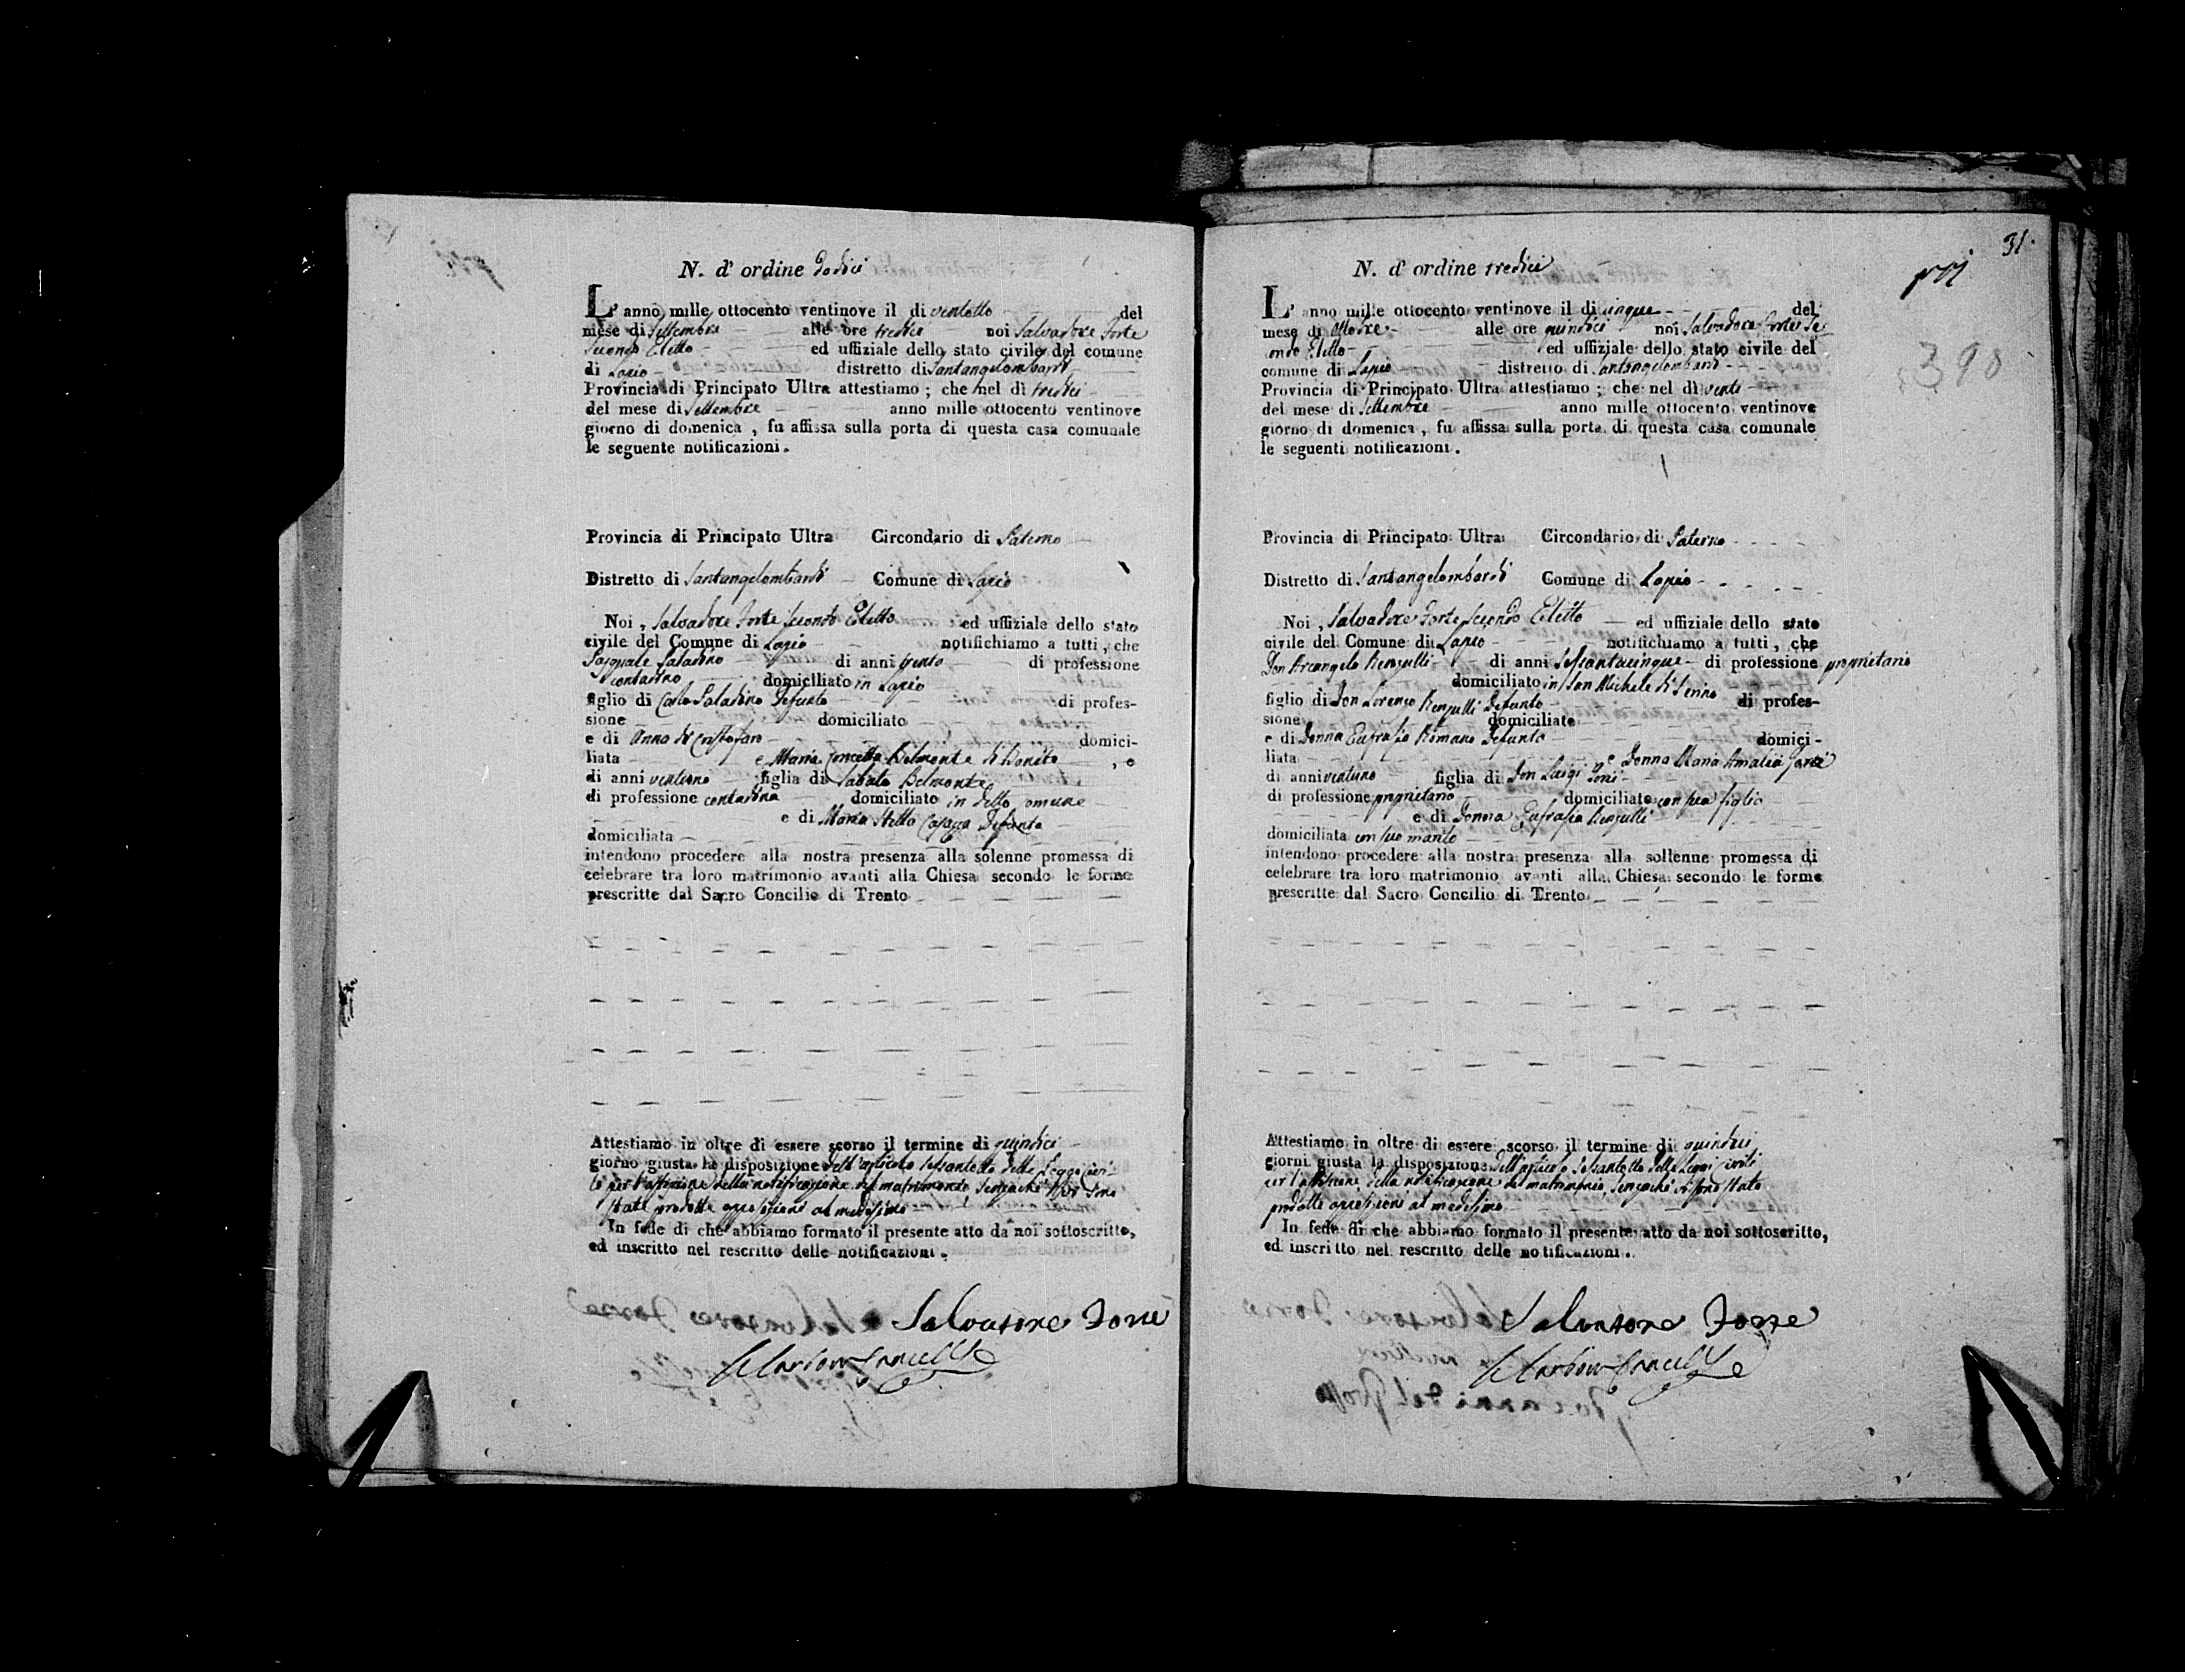 N. d' ordine dodici
L' anno mille ottocento ventinove il di ventotto del
mese di Settembre alle ore tredici noi Salvadore Forte
Secondo Eletto ed uffiziale dello stato civile del comune
di Lapio distretto di Santangelombardi
Provincia di Principato Ultra attestiamo ; che nel dì tredici
del mese di Settembre anno mille ottocento ventinove
giorno di domenica , fu affissa sulla porta di questa casa comunale
le seguente notificazioni .
Provincia di Principato Ultra Circondario di Paterno
Distretto di Santangelombardi Comune di Lapio
Noi , Salvadore Forte Secondo Eletto ed uffiziale dello stato
civile del Comune di Lapio notifichiamo a tutti , che
Pasquale Saladino di anni trenta di professione
contadino domiciliato in Lapio
figlio di Carlo Saladino defunto di profes-
sione domiciliato
e di Anna di Cristofaro domici-
liata e Maria Concetta Belmonte di Bonito , e
di anni ventuno figlia di Sabato Belmonte
di professione contadina domiciliato in detto comune
e di Maria defunta
domiciliata
intendono procedere alla nostra presenza alla solenne promessa di
celebrare tra loro matrimonio avanti alla Chiesa secondo le forme
prescritte dal Sacro Concilio di Trento
Attestiamo in oltre di essere scorso il termine di quindici
giorno giusta la disposizione dell'articolo sessantotto delle Leggi civi-
li per l'affissione della notificazione del matrimonio senzachè visi sono
state prodotte opposizioni al medesimo
In fede di che abbiamo formato il presente atto da noi sottoscritto,
ed inscritto nel rescritto delle notificazioni .
Salvatore Forte
31.
390
N. d' ordine tredici
L' anno mille ottocento ventinove il di cinque del
mese di Ottobre alle ore quindici noi Salvadore Forte Se-
condo Eletto ed uffiziale dello stato civile del
comune di Lapio distretto di Santangelombardi
Provincia di Principato Ultra attestiamo ; che nel dì venti
del mese di Settembre anno mille ottocento ventinove
giorno di domenica , fu affissa sulla porta di questa casa comunale
le seguenti notificazioni .
Provincia di Principato Ultra Circondario di Paterno
Distretto di Santangelombardi Comune di Lapio
Noi , Salvadore Forte Secondo Eletto ed uffiziale dello stato
civile del Comune di Lapio notifichiamo a tutti , che
Don Arcangelo Renzulli di anni sessantacinque di professione proprietario
domiciliato in San Michele di Serino
figlio di Don Lorenzo Renzulli defunto di profes-
sione domiciliato
e di Donna Eufrasia Romano defunta domici-
liata e Donna Maria Amalia
di anni ventuno figlia di Don Luigi
di professione proprietario domiciliato con sua figlia
e di Donna Eufrasia Renzulli
domiciliata con suo marito
intendono procedere alla nostra presenza alla sollenne promessa di
celebrare tra loro matrimonio avanti alla Chiesa secondo le forme
prescritte dal Sacro Concilio di Trento
Attestiamo in oltre di essere scorso il termine di quindici
giorni giusta la disposizione dell'articolo sessantotto delle Leggi civili
per l'affissione della notificazione del matrimonio, senzachè visi sono state
prodotte opposizioni al medesimo
In fede di che abbiamo formato il presente atto da noi sottoscritto,
ed inscritto nel rescritto delle notificazioni .
Salvatore Forte